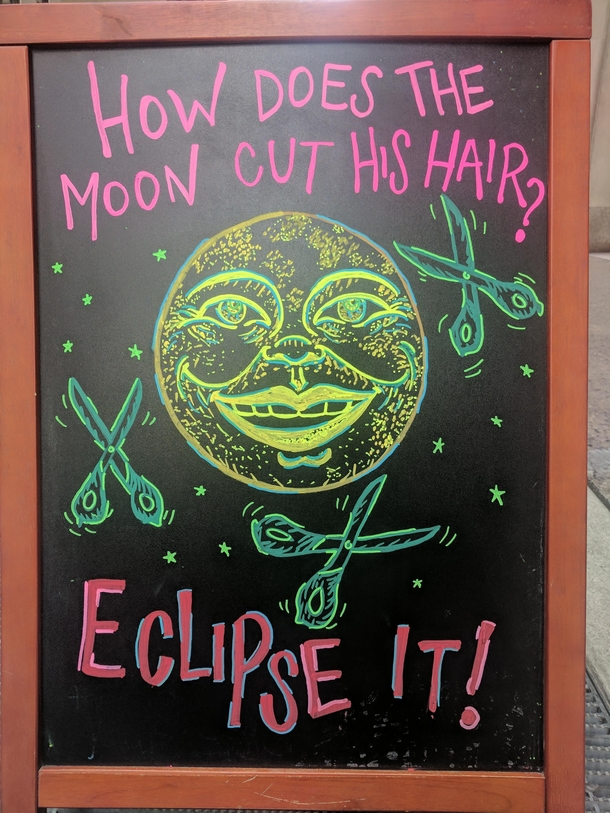 HOW DOES THE
MOON CUT HIS HAIR?
ECLIPSE IT!